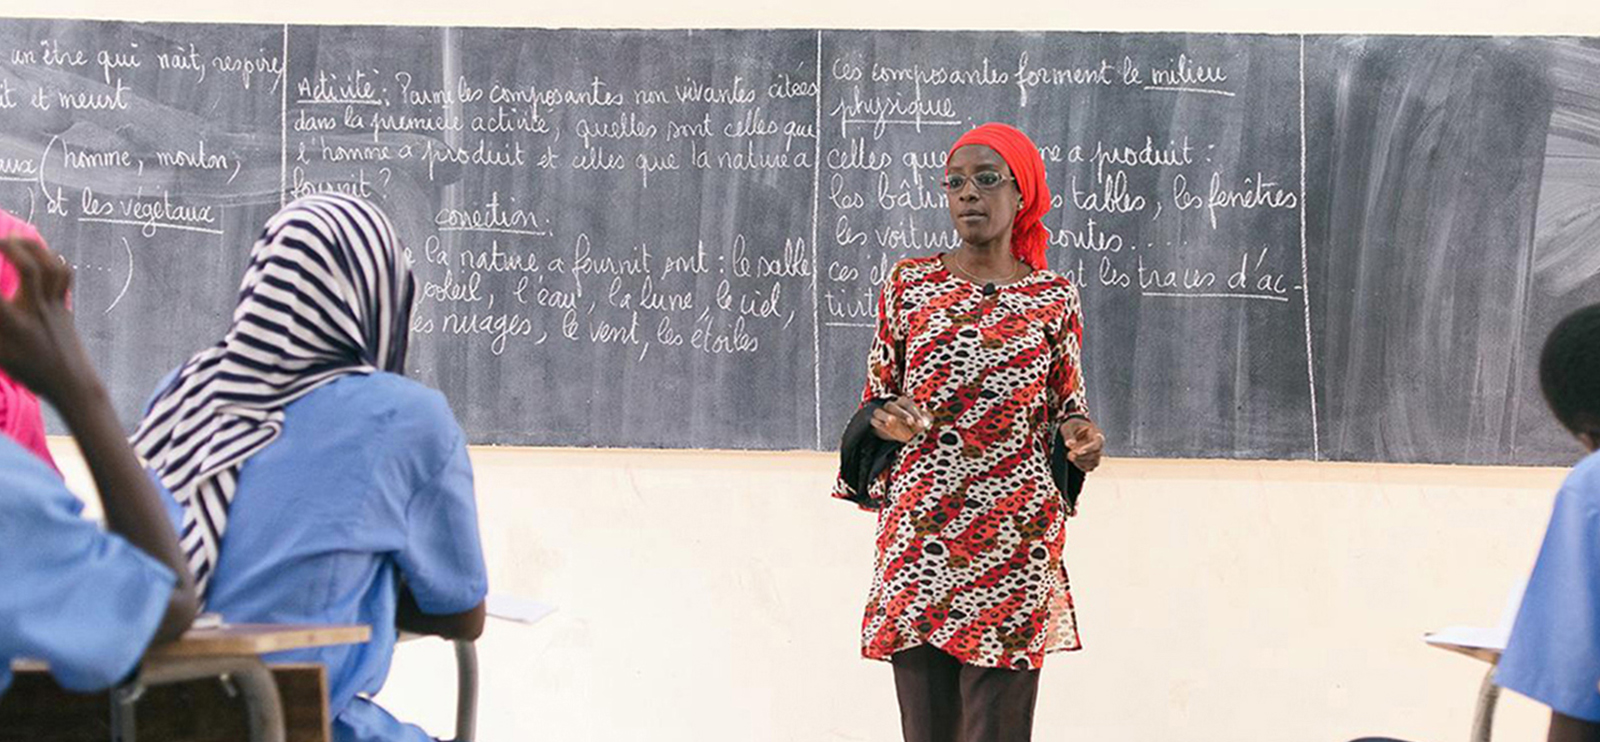 un être qui naît, respire,
it et meurt
aux (homme, mouton,
...) et les végétaux
.....)
Activité : Parmi les composantes non vivantes citées
dans la première activité, quelles sont celles que
l'homme a produit et celles que la nature a
fournit ?
correction :
la nature a fournit sont : le sable,
soleil, l'eau, la lune, le ciel,
les nuages, le vent, les étoiles
Ces composantes forment le milieu
physique.
celles que a produit :
les tables, les fenêtres
les voitures routes....
ces les traces d'ac-
tivit